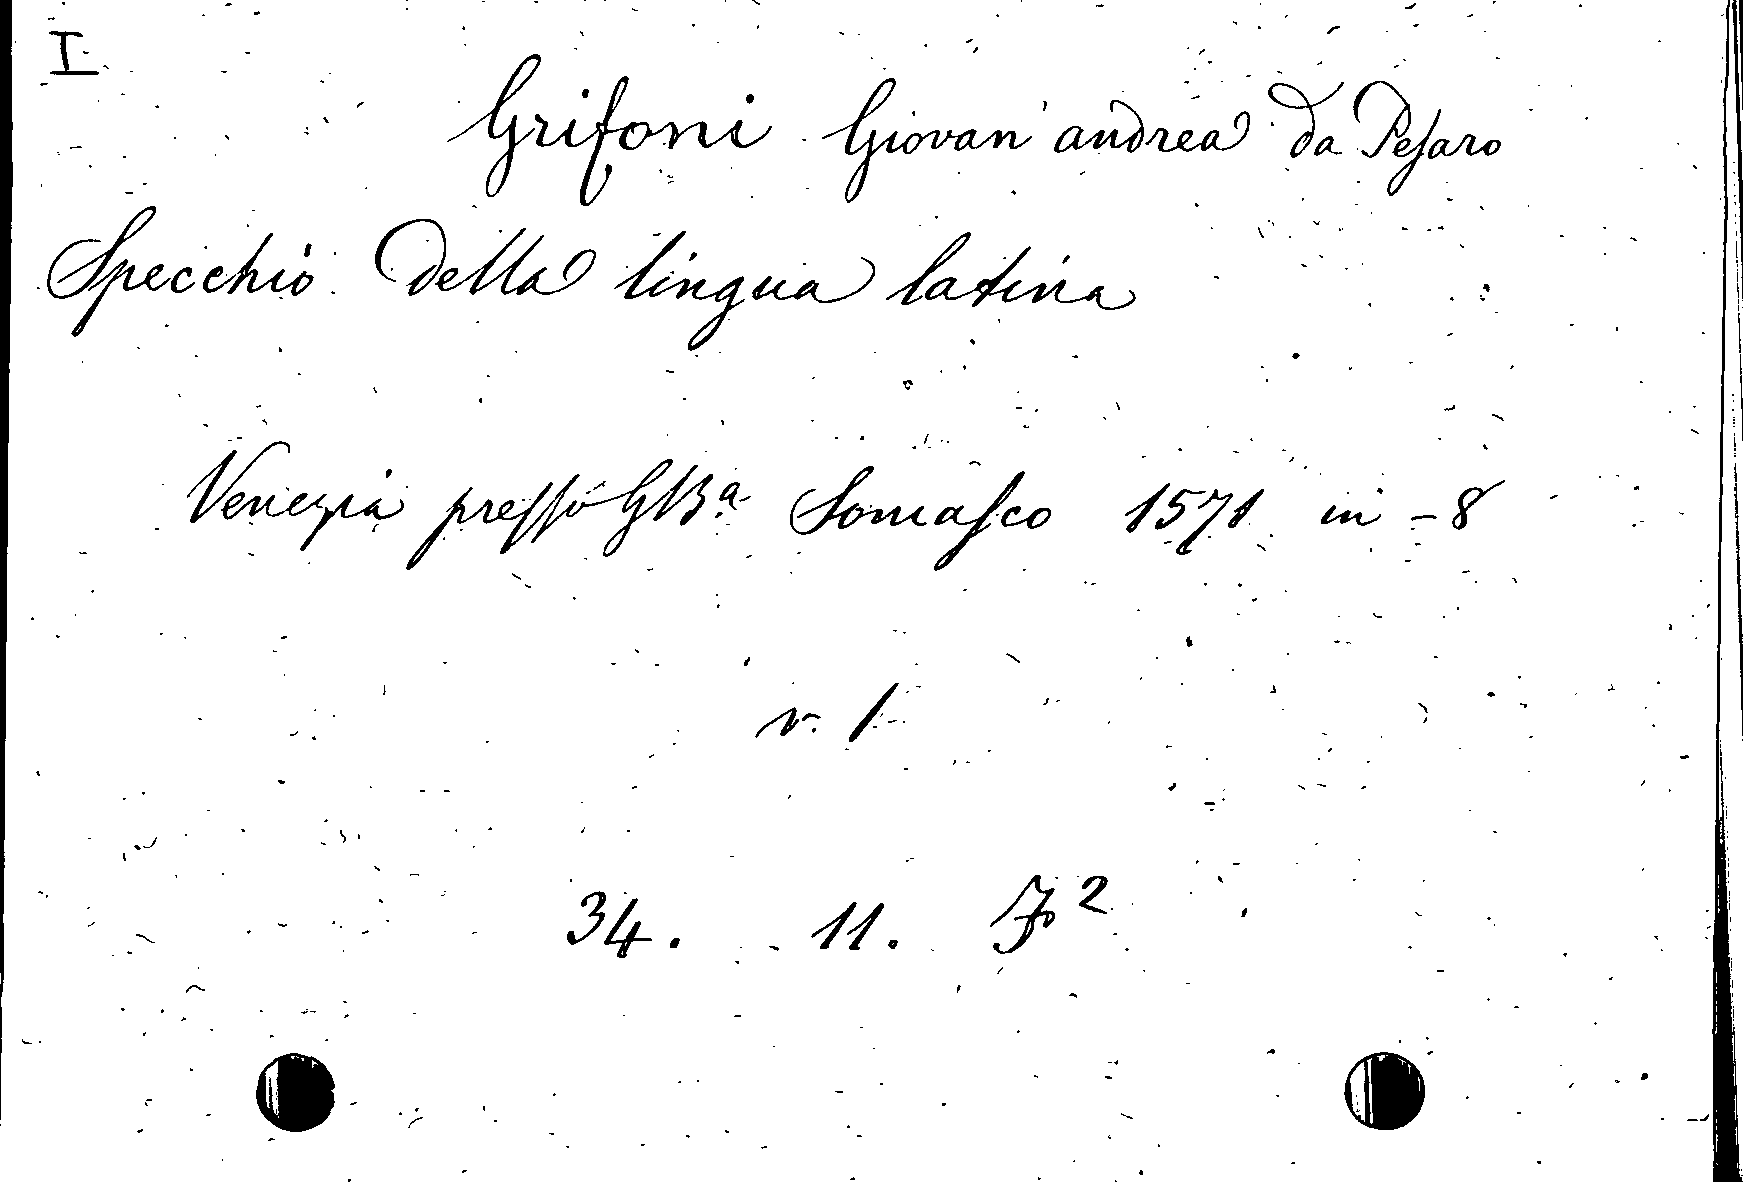 I
Grifoni Giovan' andrea da Pesaro
Specchio della lingua latina
Venezia presso GBa. Somasco 1571 in -8
v. 1
34. 11. F2